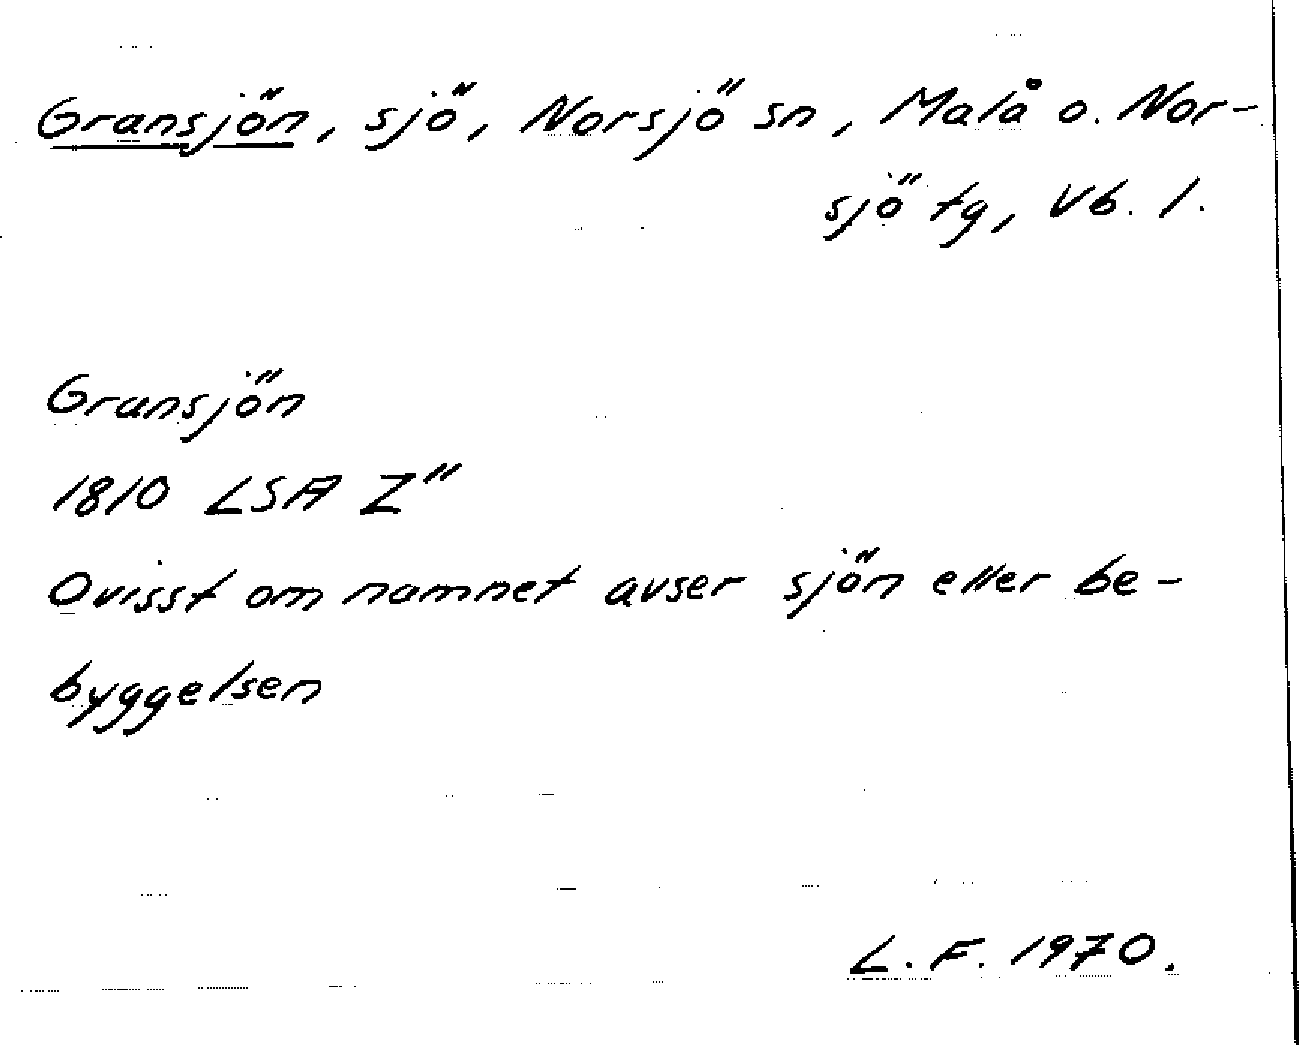 Gransjön, sjö, Norsjö sn, Malå o. Nor-
sjö tg, Vb. l.
Gransjön
1810 LSA Z"
Ovisst om namnet avser sjön eller be-
byggelsen
L. F. 1970.